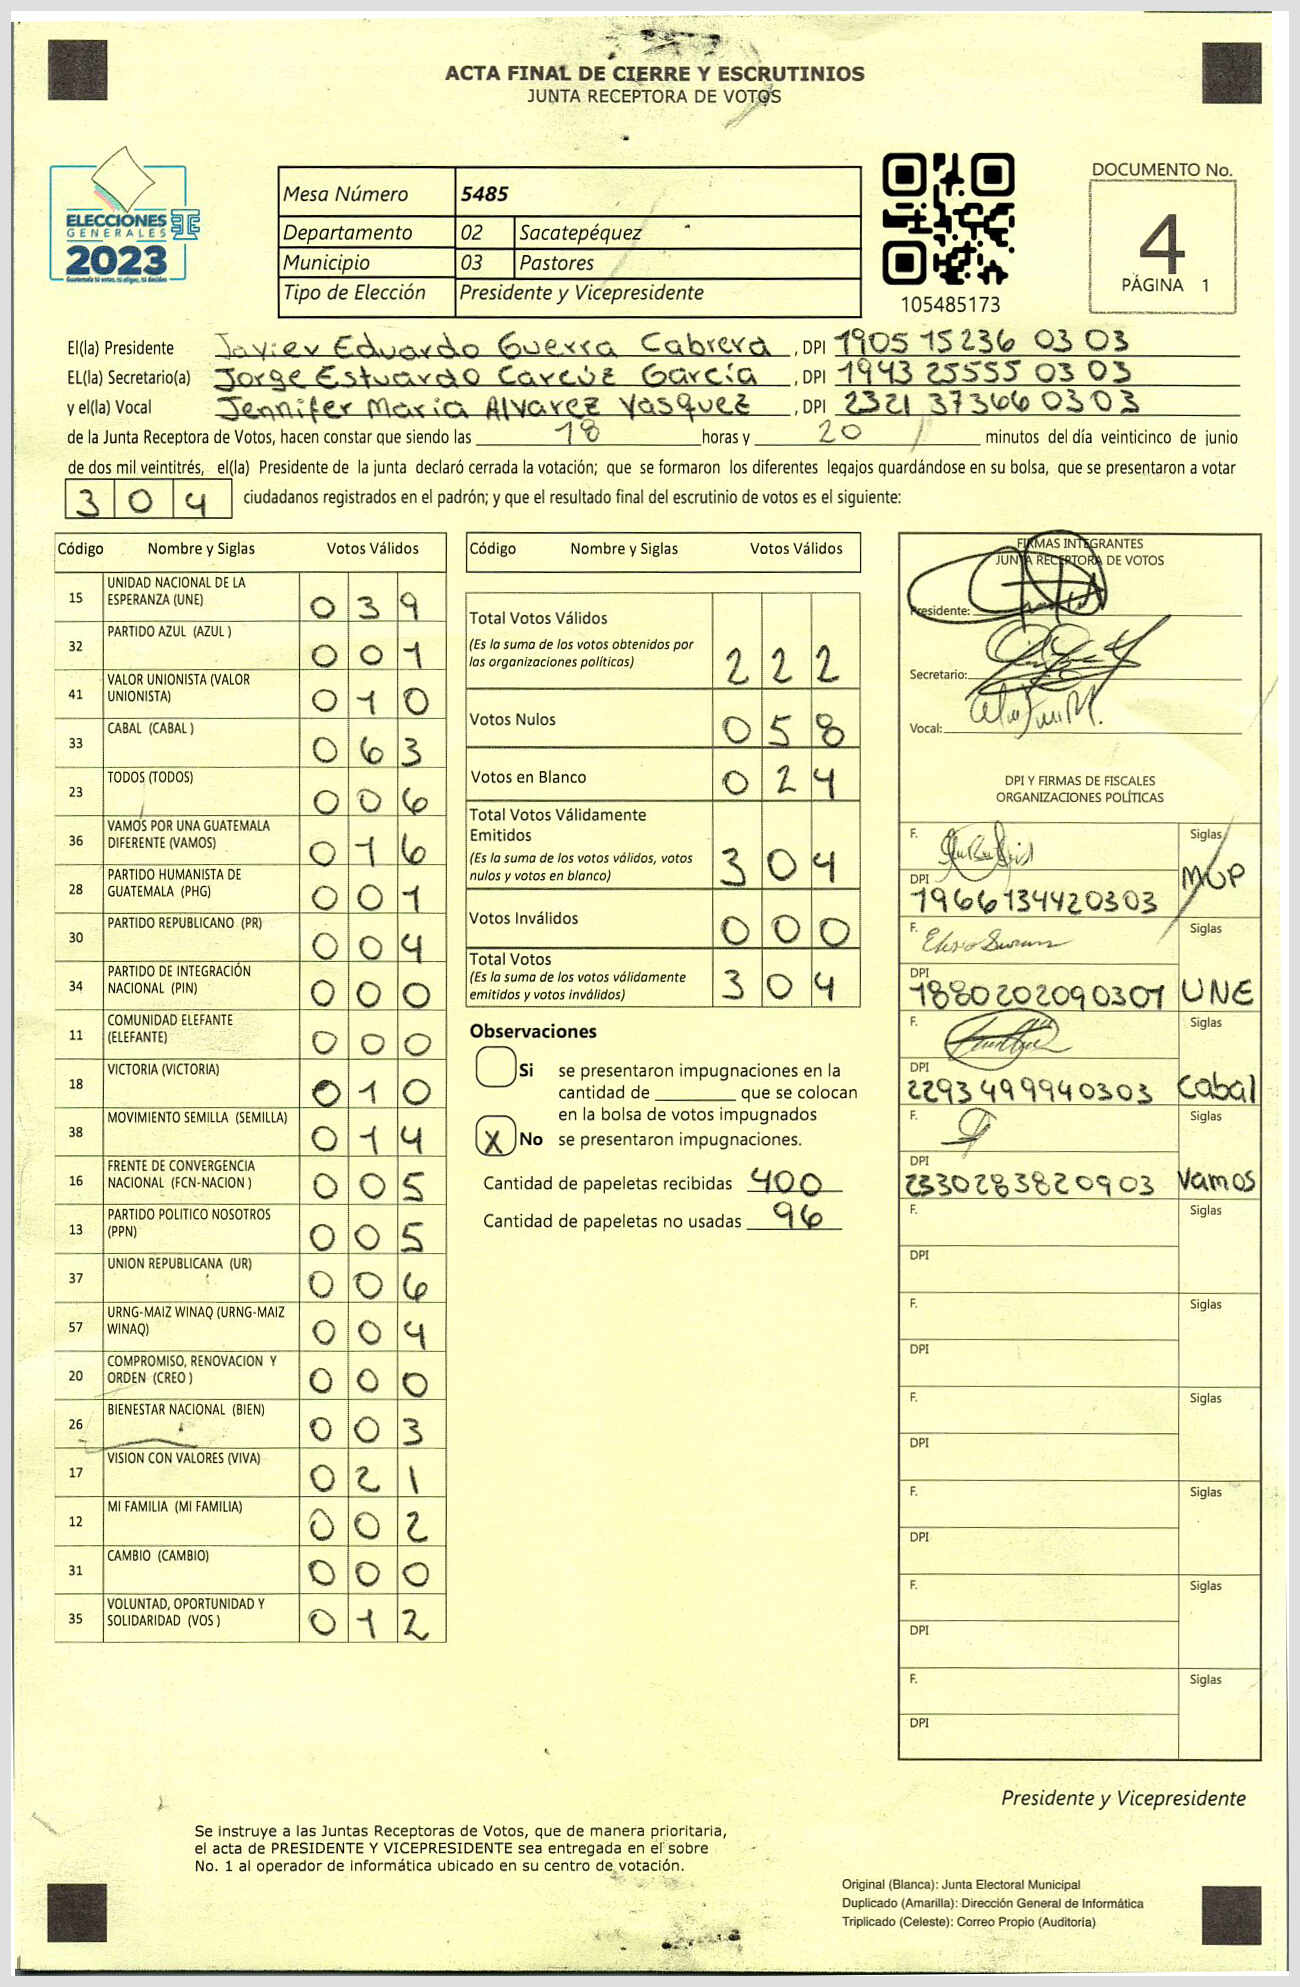 ACTA FINAL DE CIERRE Y ESCRUTINIOS
JUNTA RECEPTORA DE VOTOS
ELECCIONES
GENERALES
2023
Guatemala tú votas, tú eliges, tú decides
Mesa Número 5485
Departamento 02 Sacatepéquez
Municipio 03 Pastores
Tipo de Elección Presidente y Vicepresidente
105485173
DOCUMENTO No.
4
PÁGINA 1
El(la) Presidente Javier Eduardo Guerra Cabrera, DPI 1905 15236 03 03
EL(la) Secretario(a) Jorge Estuardo Carcúz García, DPI 1943 25555 03 03
y el(la) Vocal Jennifer Maria Alvarez Vasquez, DPI 2321 37366 0303
de la Junta Receptora de Votos, hacen constar que siendo las 18 horas y 20 minutos del día veinticinco de junio
de dos mil veintitrés, el(la) Presidente de la junta declaró cerrada la votación; que se formaron los diferentes legajos guardándose en su bolsa, que se presentaron a votar
304 ciudadanos registrados en el padrón; y que el resultado final del escrutinio de votos es el siguiente:
Código Nombre y Siglas Votos Válidos
15 UNIDAD NACIONAL DE LA
ESPERANZA (UNE) 039
32 PARTIDO AZUL (AZUL ) 001
41 VALOR UNIONISTA (VALOR
UNIONISTA) 010
33 CABAL (CABAL ) 063
23 TODOS (TODOS) 006
36 VAMOS POR UNA GUATEMALA
DIFERENTE (VAMOS) 016
28 PARTIDO HUMANISTA DE
GUATEMALA (PHG) 001
30 PARTIDO REPUBLICANO (PR) 004
34 PARTIDO DE INTEGRACIÓN
NACIONAL (PIN) 000
11 COMUNIDAD ELEFANTE
(ELEFANTE) 000
18 VICTORIA (VICTORIA) 010
38 MOVIMIENTO SEMILLA (SEMILLA) 014
16 FRENTE DE CONVERGENCIA
NACIONAL (FCN-NACION ) 005
13 PARTIDO POLITICO NOSOTROS
(PPN) 005
37 UNION REPUBLICANA (UR) 006
57 URNG-MAIZ WINAQ (URNG-MAIZ
WINAQ) 004
20 COMPROMISO, RENOVACION Y
ORDEN (CREO ) 000
26 BIENESTAR NACIONAL (BIEN) 003
17 VISION CON VALORES (VIVA) 021
12 MI FAMILIA (MI FAMILIA) 002
31 CAMBIO (CAMBIO) 000
35 VOLUNTAD, OPORTUNIDAD Y
SOLIDARIDAD (VOS ) 012
Código Nombre y Siglas Votos Válidos
Total Votos Válidos
(Es la suma de los votos obtenidos por
las organizaciones políticas) 222
Votos Nulos 058
Votos en Blanco 024
Total Votos Válidamente
Emitidos
(Es la suma de los votos válidos, votos
nulos y votos en blanco) 304
Votos Inválidos 000
Total Votos
(Es la suma de los votos válidamente
emitidos y votos inválidos) 304
Observaciones
Si se presentaron impugnaciones en la
cantidad de ________ que se colocan
en la bolsa de votos impugnados
X No se presentaron impugnaciones.
Cantidad de papeletas recibidas 400
Cantidad de papeletas no usadas 96
FIRMAS INTEGRANTES
JUNTA RECEPTORA DE VOTOS
Presidente:
Secretario:
Vocal:
DPI Y FIRMAS DE FISCALES
ORGANIZACIONES POLÍTICAS
F. Siglas
MLP
DPI
1966134420303
F. Siglas
DPI
1880202090301 UNE
F. Siglas
DPI
2293499940303 Cabal
F. Siglas
DPI
2330283820903 Vamos
F. Siglas
DPI
F. Siglas
DPI
F. Siglas
DPI
F. Siglas
DPI
F. Siglas
DPI
F. Siglas
DPI
Presidente y Vicepresidente
Se instruye a las Juntas Receptoras de Votos, que de manera prioritaria,
el acta de PRESIDENTE Y VICEPRESIDENTE sea entregada en el sobre
No. 1 al operador de informática ubicado en su centro de votación.
Original (Blanca): Junta Electoral Municipal
Duplicado (Amarilla): Dirección General de Informática
Triplicado (Celeste): Correo Propio (Auditoría)